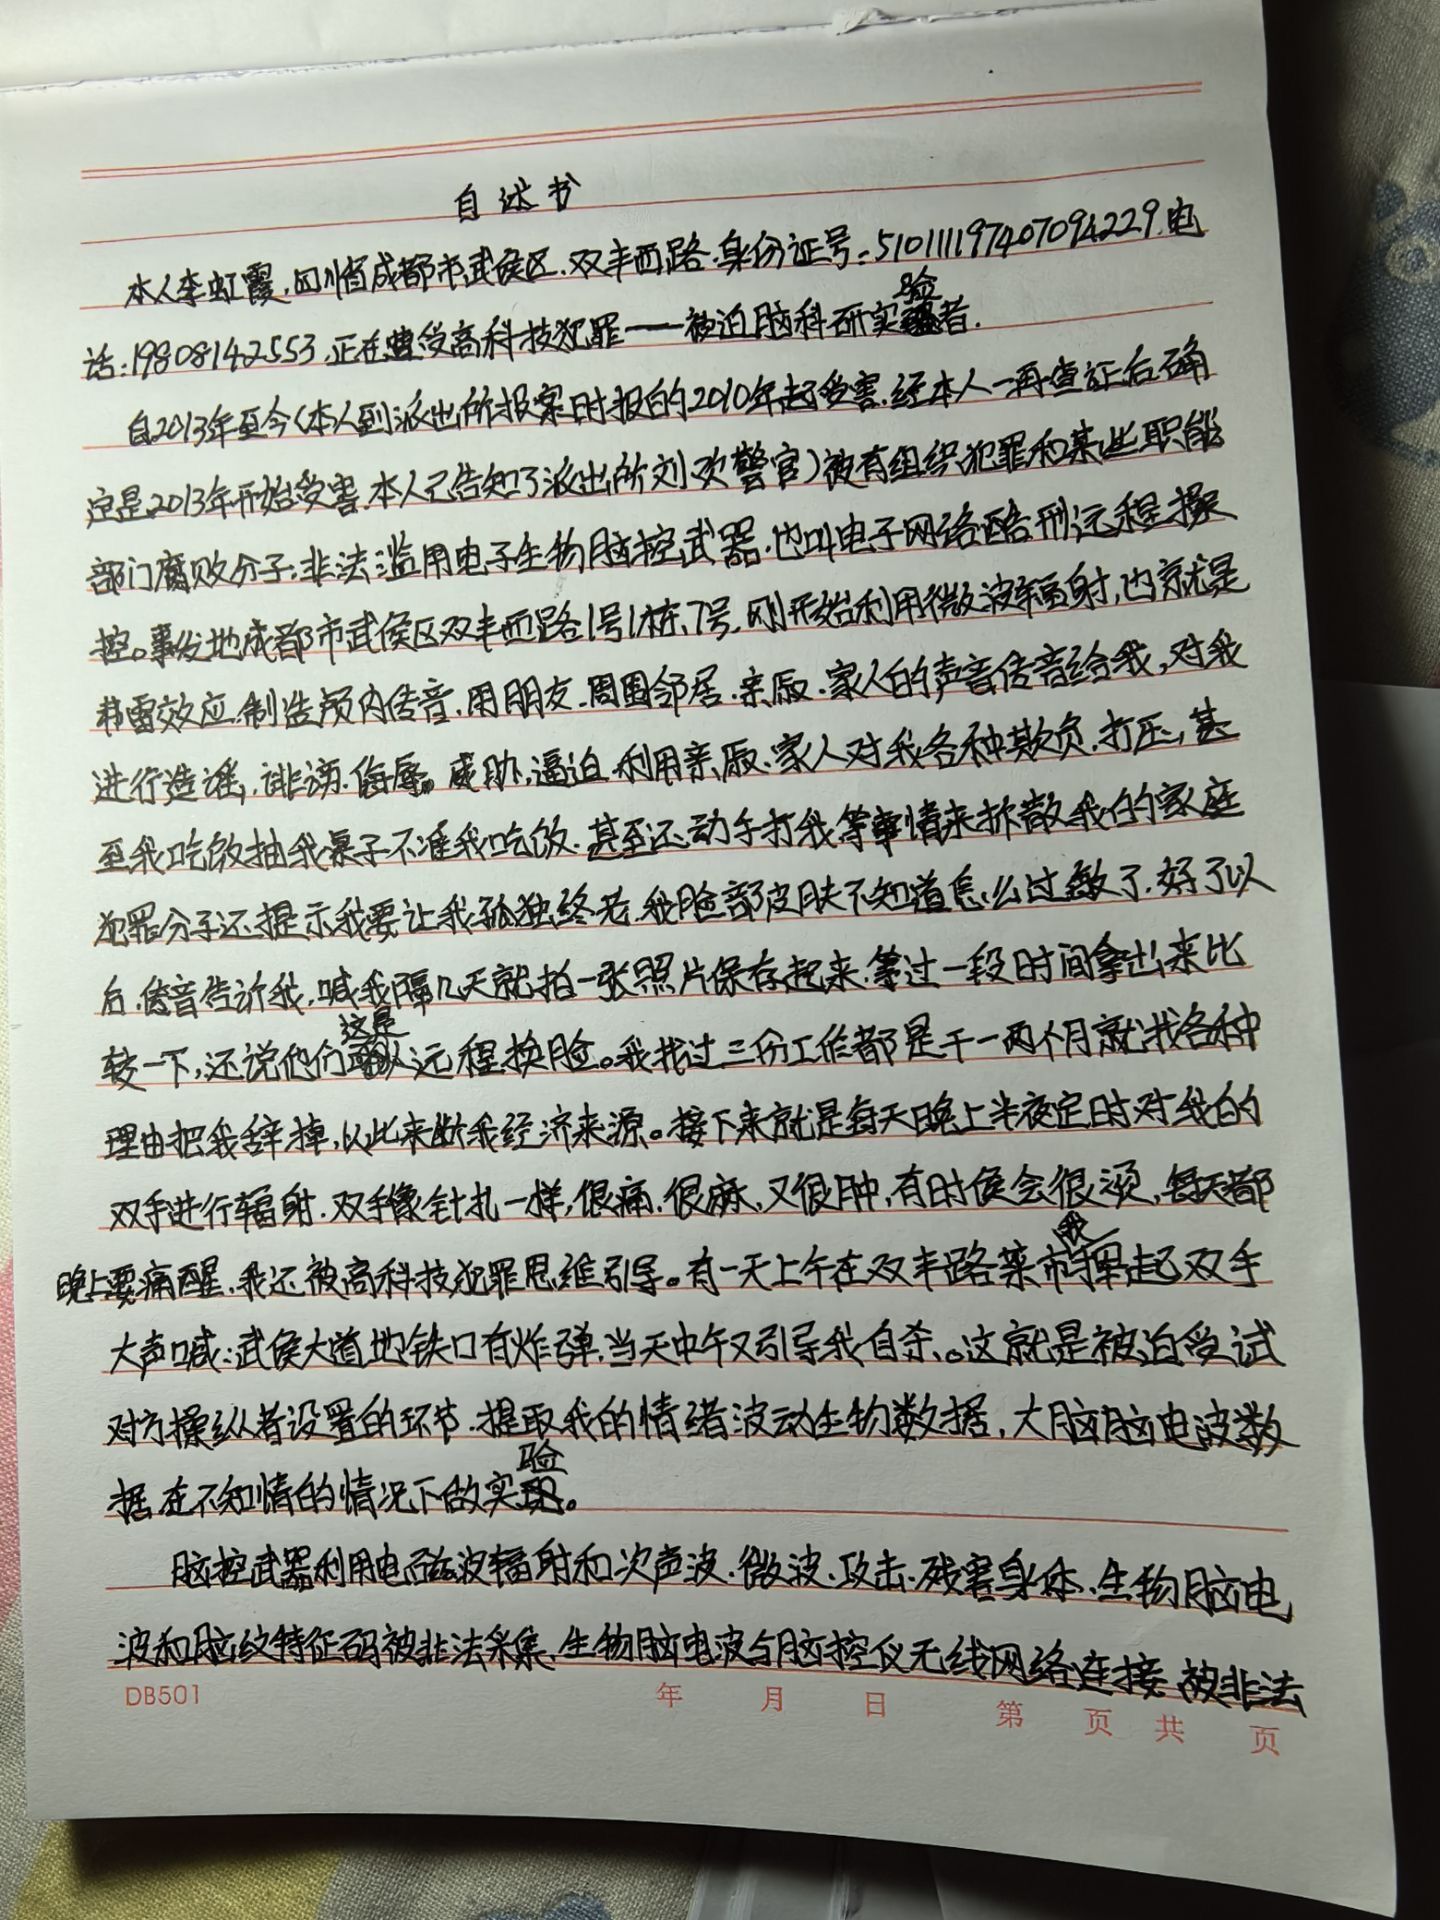 自述书
本人李虹霞,四川省成都市武侯区.双丰西路.身份证号:510111197407094229.电
话:19808142553.正在遭受高科技犯罪——被迫脑科研实验者.
自2013年至今(本人到派出所报案时报的2010年起受害.经本人一再查证后确
定是2013年开始受害.本人已告知了派出所刘欢警官)被有组织犯罪和某些职能
部门腐败分子.非法滥用电子生物脑控武器.也叫电子网络酷刑远程操
控。事发地成都市武侯区双丰西路1号1栋7号.刚开始利用微波辐射,也就是
弗雷效应.制造颅内传音.用朋友.周围邻居.亲戚.家人的声音传音给我,对我
进行造谣,诽谤.侮辱。威胁,逼迫.利用亲戚.家人对我各种欺负.打压,甚
至我吃饭抽我桌子不准我吃饭.甚至还动手打我等事情来拆散我的家庭
犯罪分子还提示我要让我孤独终老.我脸部皮肤不知道怎么过敏了.好了以
后.传音告诉我,喊我隔几天就拍一张照片保存起来.等过一段时间拿出来比
较一下,还说他们这是远程换脸。我找过三份工作都是干一两个月就找各种
理由把我辞掉,以此来断我经济来源。接下来就是每天晚上半夜定时对我的
双手进行辐射.双手像针扎一样,很痛.很麻,又很肿,有时候会很烫,每天都
晚上要痛醒.我还被高科技犯罪思维引导。有一天上午在双丰路菜市我举起双手
大声喊:武侯大道地铁口有炸弹.当天中午又引导我自杀.。这就是被迫受试
对方操纵者设置的环节.提取我的情绪波动生物数据,大脑脑电波数
据.在不知情的情况下做实验。
脑控武器利用电磁波辐射和次声波.微波.攻击.残害身体.生物脑电
波和脑纹特征码被非法采集.生物脑电波与脑控仪无线网络连接.被非法
DB501 年 月 日 第 页 共 页